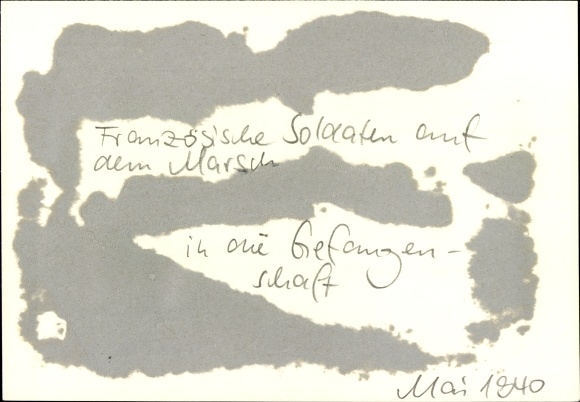 Französische Soldaten auf
dem Marsch
in die Gefangen-
schaft
Mai 1940